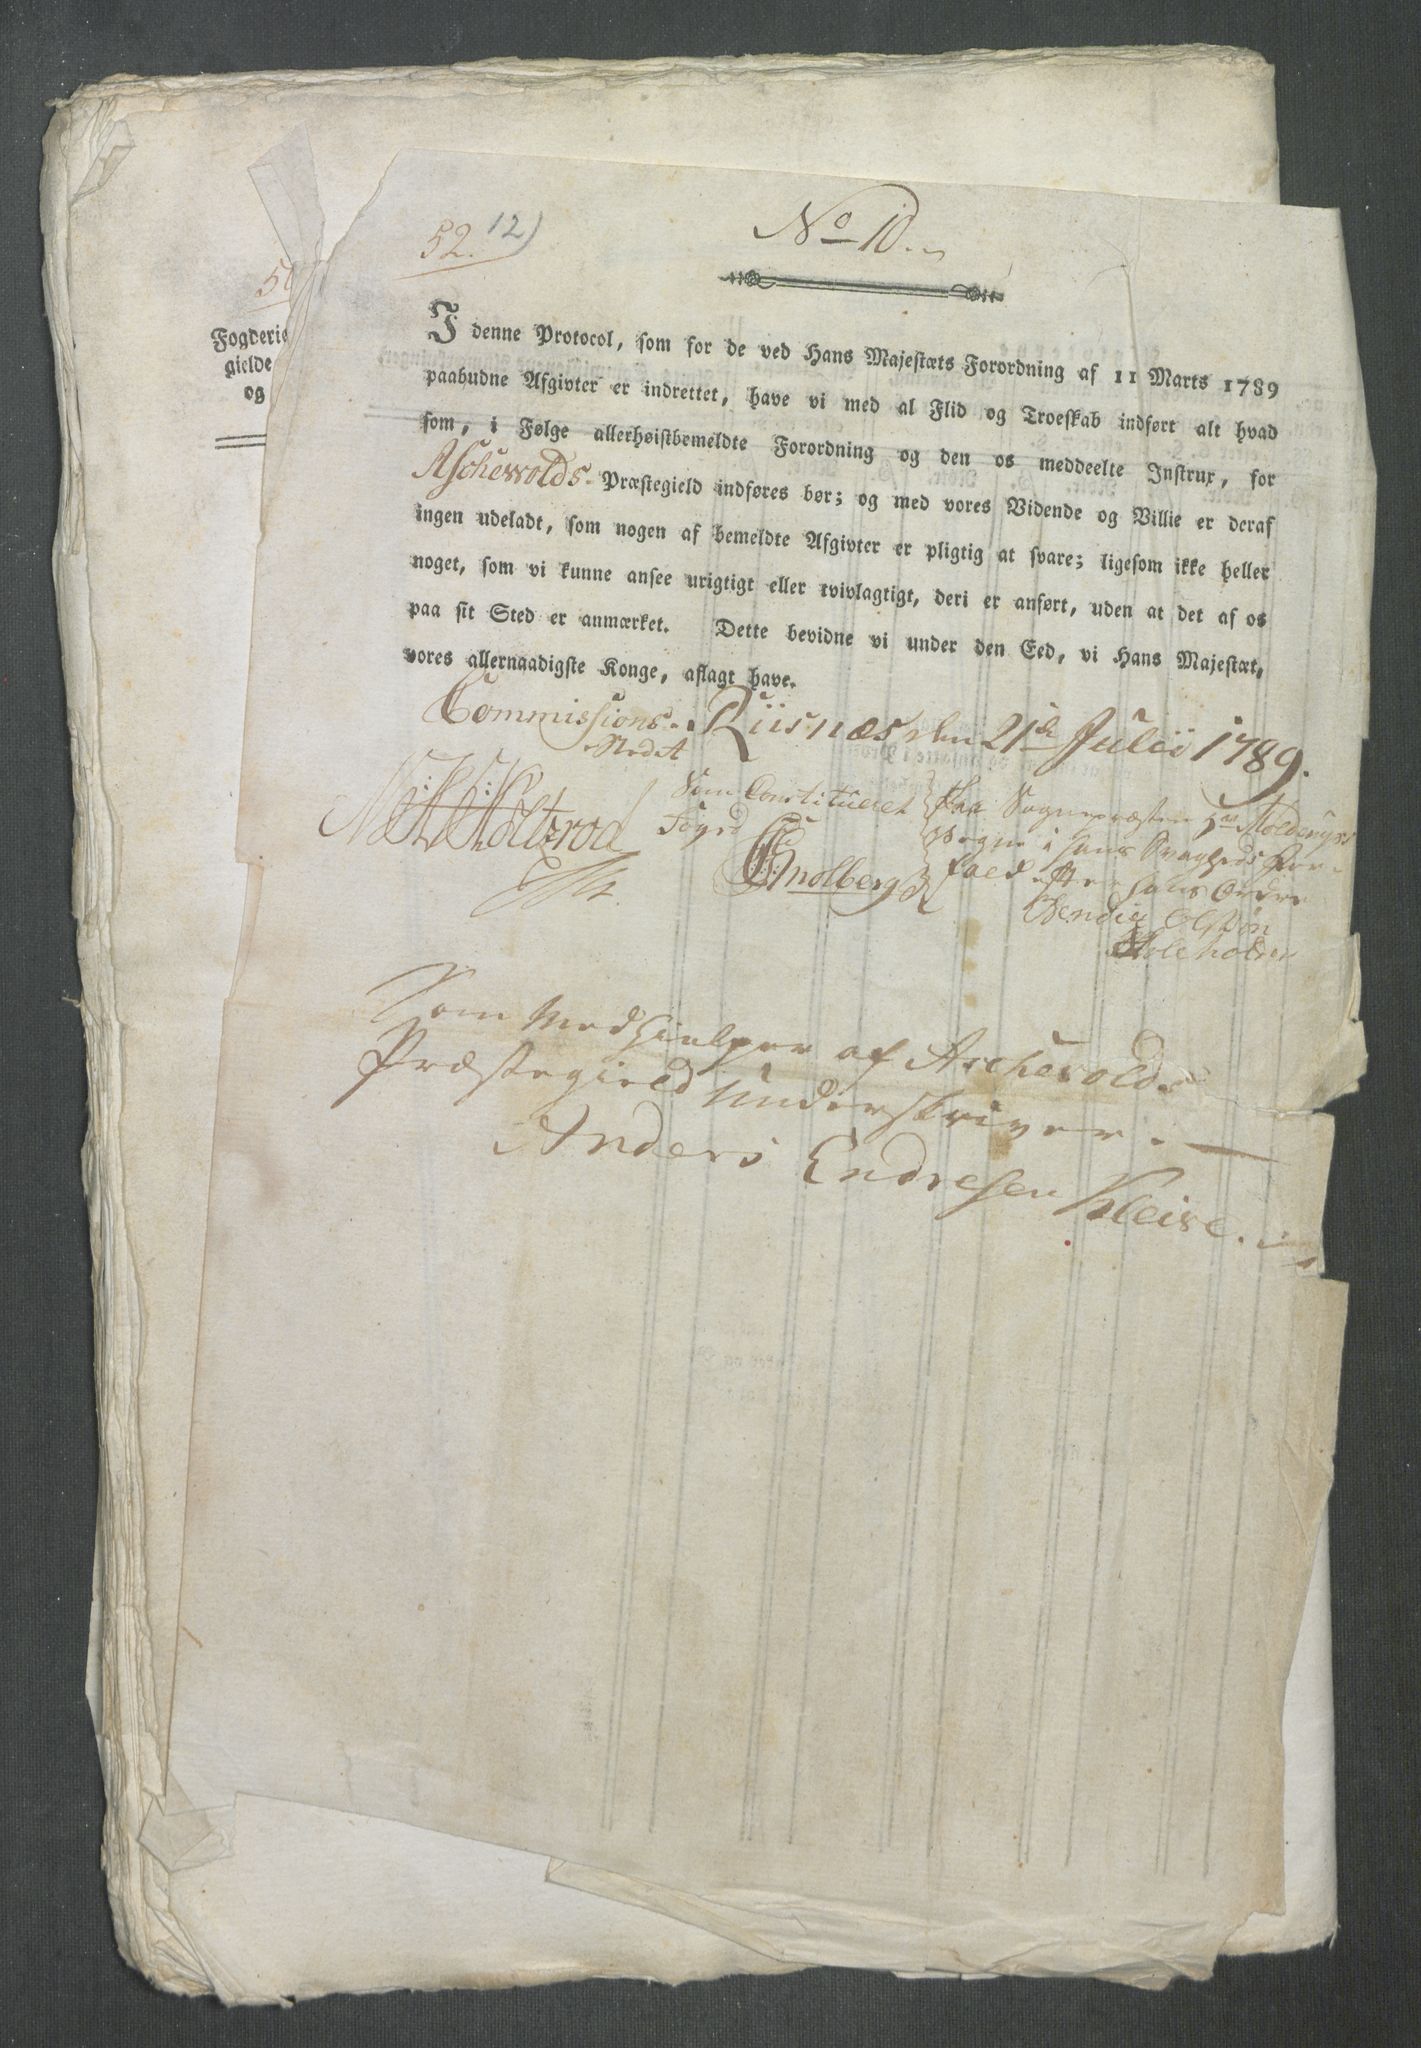 No 10.
52. 12)
Fogderie
gielde
og
I denne Protocol, som for de ved Hans Majestæts Forordning af 11 Marts 1789
paabudne Afgivter er indrettet, have vi med al Flid og Troeskab indført alt hvad
som, i Følge allerhøistbemeldte Forordning og den os meddeelte Instrux, for
Aschevolds Præstegield indføres bør; og med vores Vidende og Villie er deraf
ingen udeladt, som nogen af bemeldte Afgivter er pligtig at svare; ligesom ikke heller
noget, som vi kunne ansee urigtigt eller tvivlagtigt, deri er anført, uden at det af os
paa sit Sted er anmærket. Dette bevidne vi under den Eed, vi Hans Majestæt,
vores allernaadigste Konge, aflagt have.
Commissions-Riisnæs den 21de Julii 1789.
Stedet
Som Constitueret
Foged
Paa Sognepræsten Hr Moldenhaers
Vegne i hans Svagheds For-
fald efter hans Ordre
Bendix Olsøn
Holtzrod
Som Medhielper af Aschevolds
Præstegield Underskriver.
Anders Endresen Kleive.